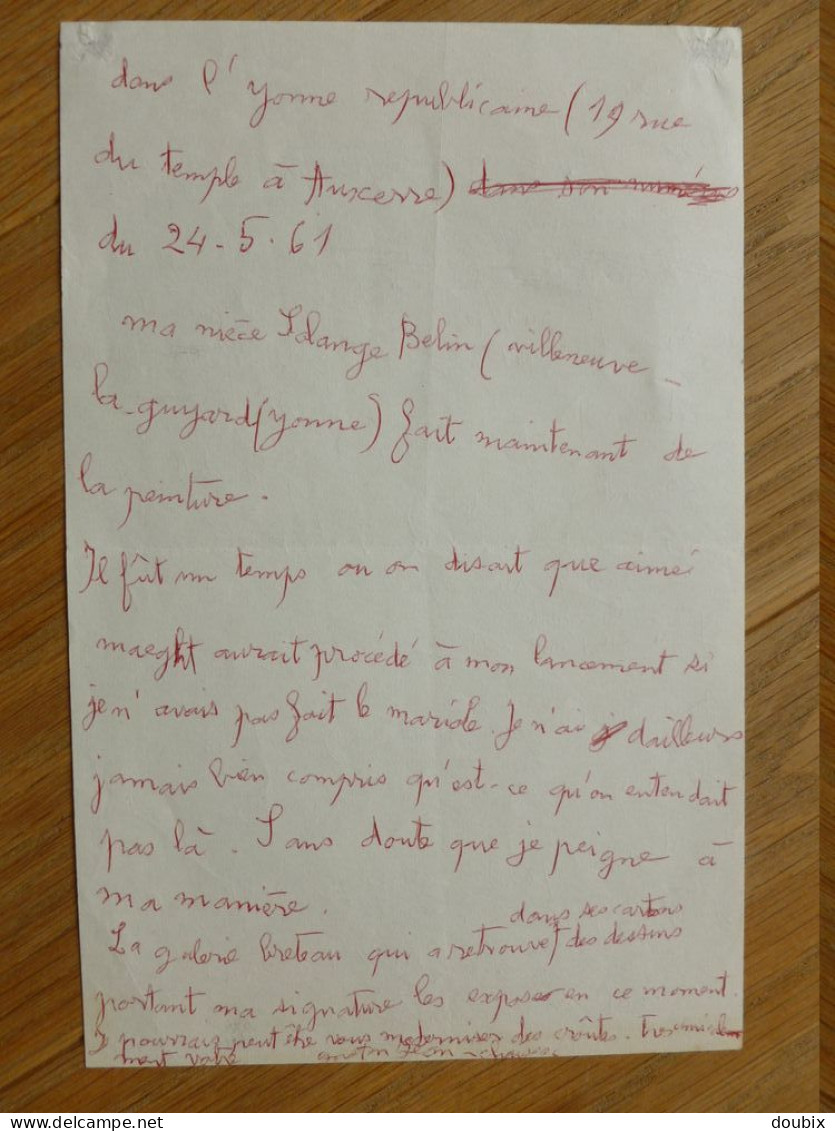 dans l'Yonne republicaine (19 rue
du temple à Auxerre) dans son numéro
du 24-5-61
ma nièce Solange Belin (villeneuve-
la-guyard (yonne) fait maintenant de
la peinture.
Il fût un temps ou on disait que aimé
maeght aurait procédé à mon lancement si
je n'avais pas fait le mariole. Je n'ai j dailleurs
jamais bien compris qu'est-ce qu'on entendait
pas là. Sans doute que je peigne à
ma manière.
dans ses cartons
La galerie breteau qui a retrouvé des dessins
portant ma signature les expose en ce moment.
Je pourrais peut être vous moderniser des croûtes.
ment votre
doubix